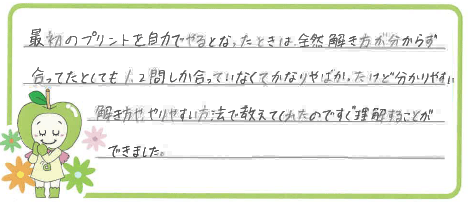 最初のプリントを自力でやるとなったときは、全然解き方が分からず
合ってたとしても1、2問しか合っていなくてかなりやばかったけど分かりやすい
解き方や、やりやすい方法で教えてくれたのですぐ理解することが
できました。